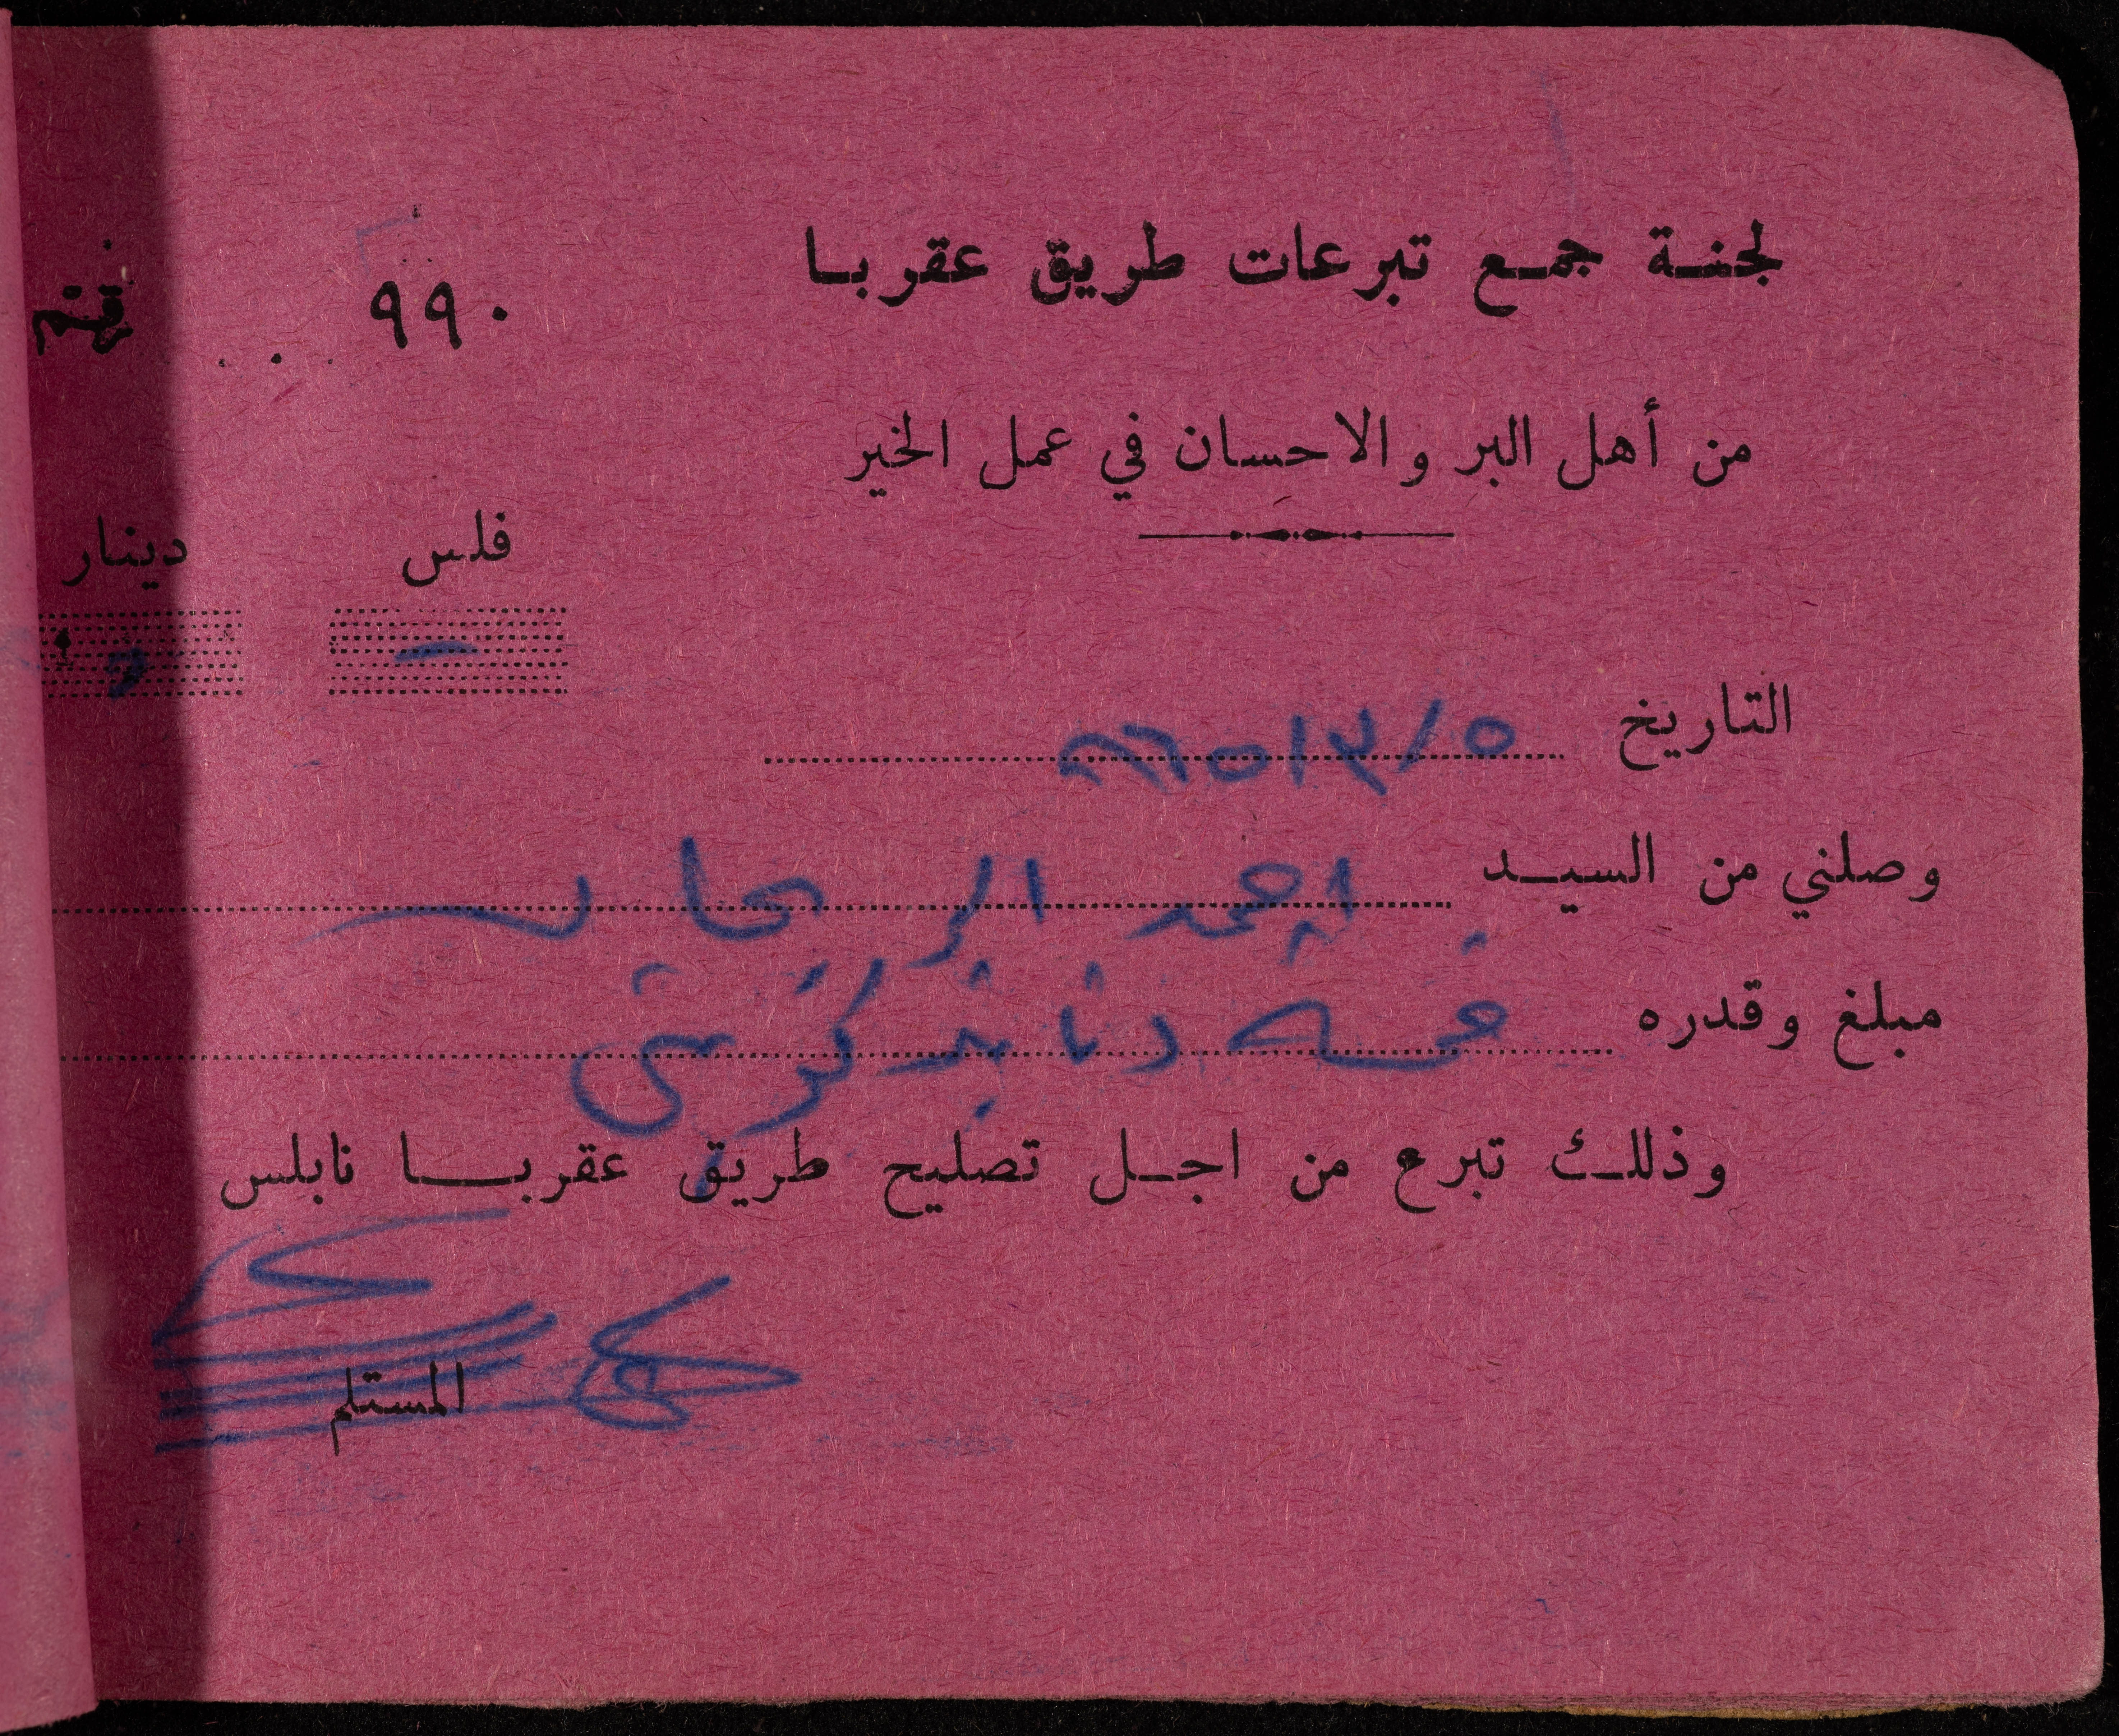 لجنة جمع تبرعات طريق عقربا
٩٩٠
من أهل البر والاحسان في عمل الخير
فلس دينار
التاريخ ٥/٣/٩٦٥
وصلني من السيد احمد الريحان
مبلغ وقدره خمسة دنانير
وذلك تبرع من اجل تصليح طريق عقربا نابلس
المستلم